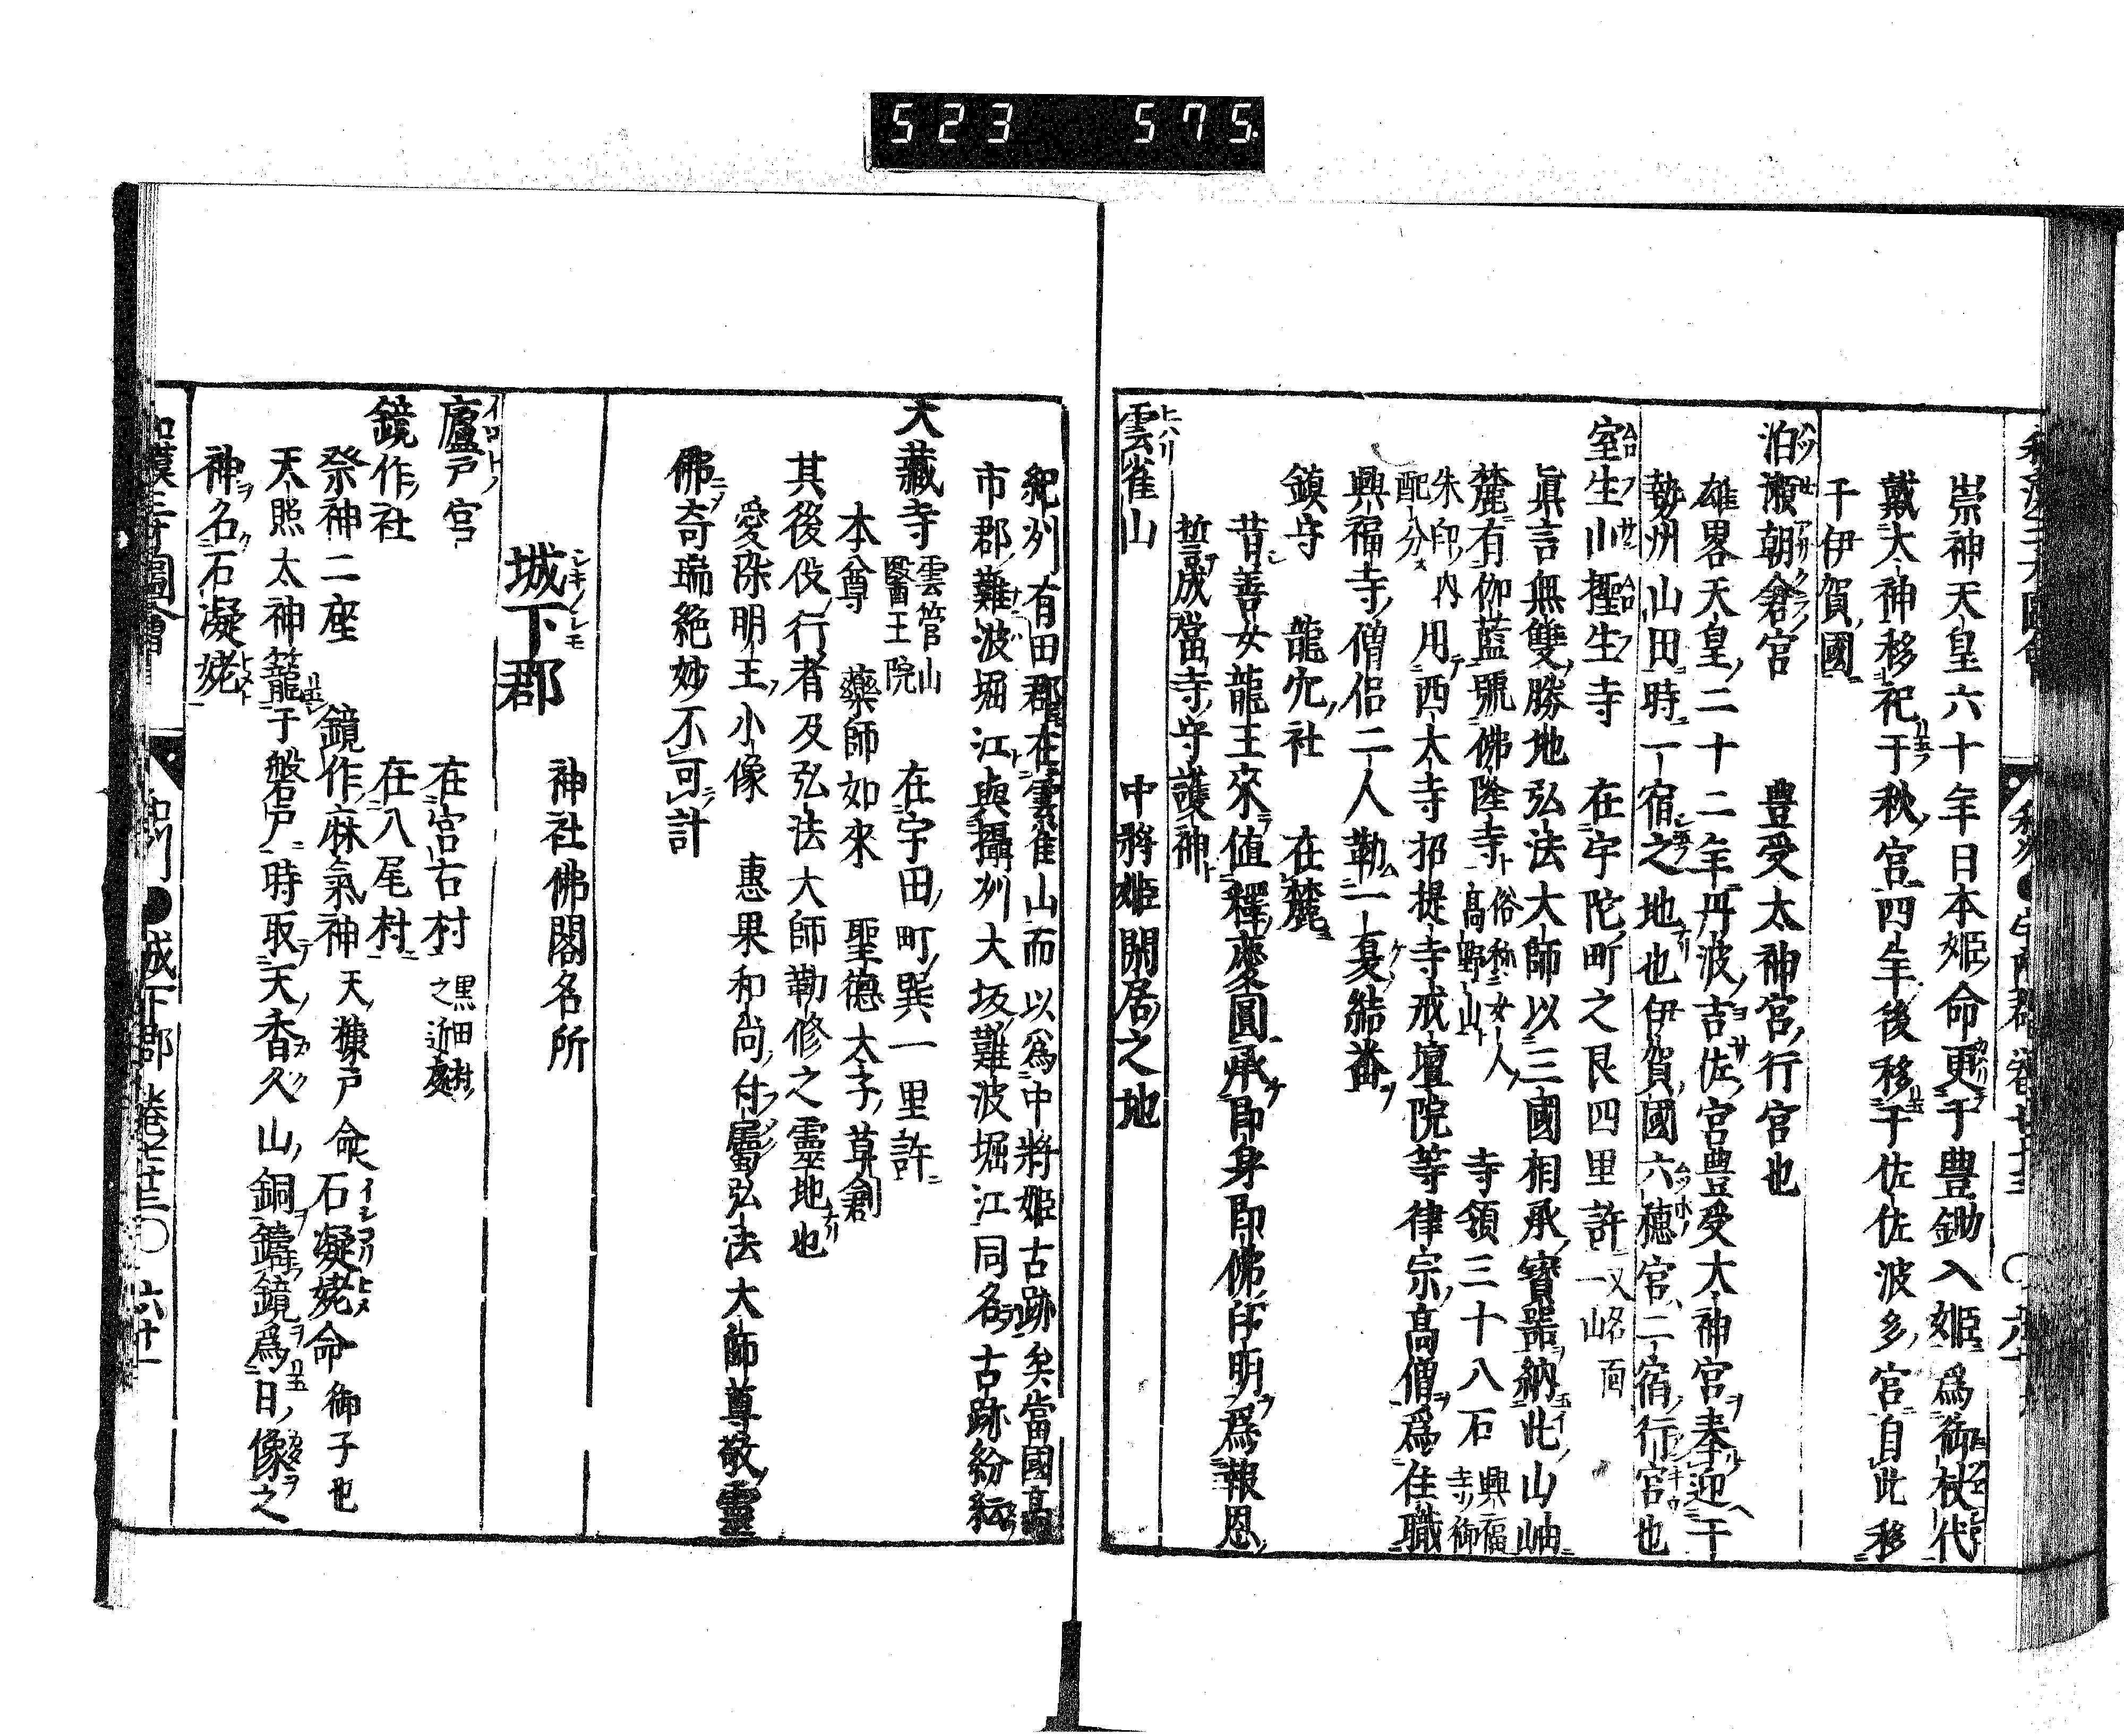 523 575
崇神天皇六十年日本姫命更于豊鋤入姫爲御杖代
戴大神移祀于秋宮四年後移于佐佐波多宮自此移
于伊賀國
泊瀬朝倉宮 豊受太神宮行宮也
雄畧天皇二十二年丹波吉佐宮豊受大神宮奉迎于
勢州山田時一宿之地也伊賀國六穂宮二宿行宮也
室生山 𢫦生寺 在宇陀町之艮四里許
眞言無雙勝地弘法大師以三國相承寳器納此山岫
麓有伽藍號佛隆寺 俗称女人高野山 寺領三十八石 興福寺御
朱印内配分 用西大寺招提寺戒壇院等律宗高僧爲住職
興福寺僧侶二人勤一夏結番
鎮守 龍穴社 在麓
昔善女龍王來値釋慶圓承即身即佛印明爲報恩
誓成當寺守護神
雲雀山 中將姫閑居之地
紀州有田郡在雲雀山而以爲中將姫古跡矣當國高
市郡難波堀江與攝州大坂難波堀江同名古跡紛紜
大藏寺 雲管山醫王院 在宇田町巽一里許
本尊 藥師如來 聖德太子草創
其後役行者及弘法大師勤修之靈地也
愛染明王小像 惠果和尚付屬弘法大師尊敬靈
佛奇瑞絶妙不可計
城下郡 神社佛閣名所
廬戸宮 在宮古村 黒田村之近處
鏡作社 在八尾村
祭神二座 鏡作麻氣神 天糠戸命 石凝姥命 御子也
天照太神籠于磐戸時取天香久山銅鑄鏡爲日像之
神名石凝姥
城下郡 卷之廿三 〇 六廿一